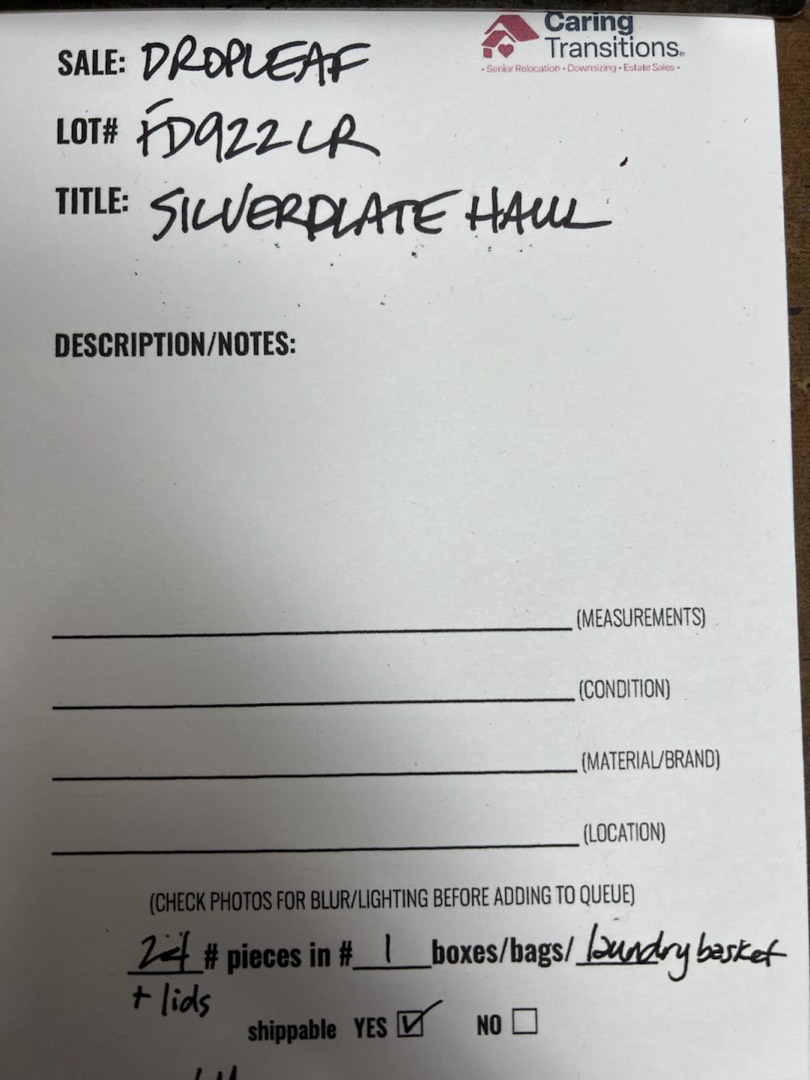 Caring
Transitions.
• Senior Relocation • Downsizing • Estate Sales •
SALE: DROPLEAF
LOT# FD922LR
TITLE: SILVERPLATE HAUL
DESCRIPTION/NOTES:
(MEASUREMENTS)
(CONDITION)
(MATERIAL/BRAND)
(LOCATION)
(CHECK PHOTOS FOR BLUR/LIGHTING BEFORE ADDING TO QUEUE)
24 # pieces in # 1 boxes/bags/ laundry basket
+ lids
shippable YES ☑ NO ☐